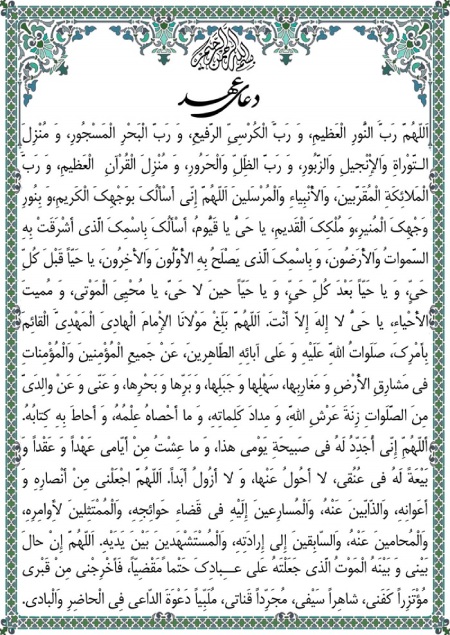 بسم الله الرحمن الرحیم
دعای عهد
اَللّهُمَّ رَبَّ النُّورِ الْعَظیمِ، وَ رَبَّ الْکُرْسِیِّ الرَّفیعِ، وَ رَبَّ الْبَحْرِ الْمَسْجُورِ، وَ مُنْزِلَ
التَّوْراةِ وَالْإِنْجیلِ وَالزَّبُورِ، وَ رَبَّ الظِّلِّ وَالْحَرُورِ، وَ مُنْزِلَ الْقُرْآنِ الْعَظیمِ، وَ رَبَّ
الْمَلائِکَةِ الْمُقَرَّبینَ، وَالْأَنْبِیاءِ وَالْمُرْسَلینَ اَللّهُمَّ إِنّی أَسأَلُکَ بِوَجْهِکَ الْکَریمِ،وَ بِنُورِ
وَجْهِکَ الْمُنیرِ،وَ مُلْکِکَ الْقَدیمِ، یا حَیُّ یا قَیُّومُ، أَسأَلُکَ بِاسْمِکَ الَّذی أَشرَقَتْ بِهِ
السَّمواتُ وَالْأَرَضُونَ، وَ بِاسْمِکَ الَّذی یَصْلَحُ بِهِ الْأَوَّلُونَ وَالْأخِرُونَ، یا حَیّاً قَبْلَ کُلِّ
حَیٍّ، وَ یا حَیّاً بَعْدَ کُلِّ حَیٍّ، وَ یا حَیّاً حینَ لا حَیَّ، یا مُحْیِیَ الْمَوْتی، وَ مُمیتَ
الْأَحْیاءِ، یا حَیُّ لا إِلهَ إِلاّ أَنْتَ. اَللّهُمَّ بَلِّغْ مَوْلانَا الْإِمامَ الْهادِیَ الْمَهْدِیَّ الْقائِمَ
بِأَمْرِکَ، صَلَواتُ اللهِ عَلَیْهِ وَ عَلی آبائِهِ الطّاهِرینَ، عَنْ جَمیعِ الْمُؤْمِنینَ وَالْمُؤْمِناتِ
فی مَشارِقِ الْأَرْضِ وَ مَغارِبِها، سَهْلِها وَ جَبَلِها، وَ بَرِّها وَ بَحْرِها، وَ عَنّی وَ عَنْ والِدَیَّ
مِنَ الصَّلَواتِ زِنَةَ عَرْشِ اللهِ، وَ مِدادَ کَلِماتِهِ، وَ ما أَحْصاهُ عِلْمُهُ، وَ أَحاطَ بِهِ کِتابُهُ.
أَللّهُمَّ إِنّی أُجَدِّدُ لَهُ فی صَبیحَةِ یَوْمی هذا، وَ ما عِشْتُ مِنْ أَیّامی عَهْداً وَ عَقْداً وَ
بَیْعَةً لَهُ فی عُنُقی، لا أَحُولُ عَنْها، وَ لا أَزُولُ أَبَداً. اَللّهُمَّ اجْعَلْنی مِنْ أَنْصارِهِ وَ
أَعْوانِهِ، وَالذّابّینَ عَنْهُ، وَالْمُسارِعینَ إِلَیْهِ فی قَضاءِ حَوائِجِهِ، وَالْمُمْتَثِلینَ لِأَوامِرِهِ،
وَالْمُحامینَ عَنْهُ، وَالسّابِقینَ إِلی إِرادَتِهِ، وَالْمُسْتَشْهَدینَ بَیْنَ یَدَیْهِ. اَللّهُمَّ إِنْ حالَ
بَیْنی وَ بَیْنَهُ الْمَوْتُ الَّذی جَعَلْتَهُ عَلی عِبادِکَ حَتْماً مَقْضِیّاً، فَأَخْرِجْنی مِنْ قَبْری
مُؤْتَزِراً کَفَنی، شاهِراً سَیْفی، مُجَرِّداً قَناتی، مُلَبِّیاً دَعْوَةَ الدّاعی فِی الْحاضِرِ وَالْبادی.